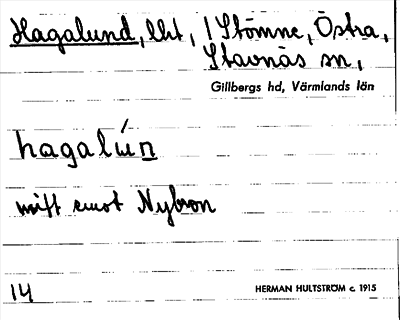 Hagalund, lht, / Stömne, Östra,
Stavnäs sn,
Gillbergs hd, Värmlands län
hagalún
mitt emot Nybron
14
HERMAN HULTSTRÖM c. 1915